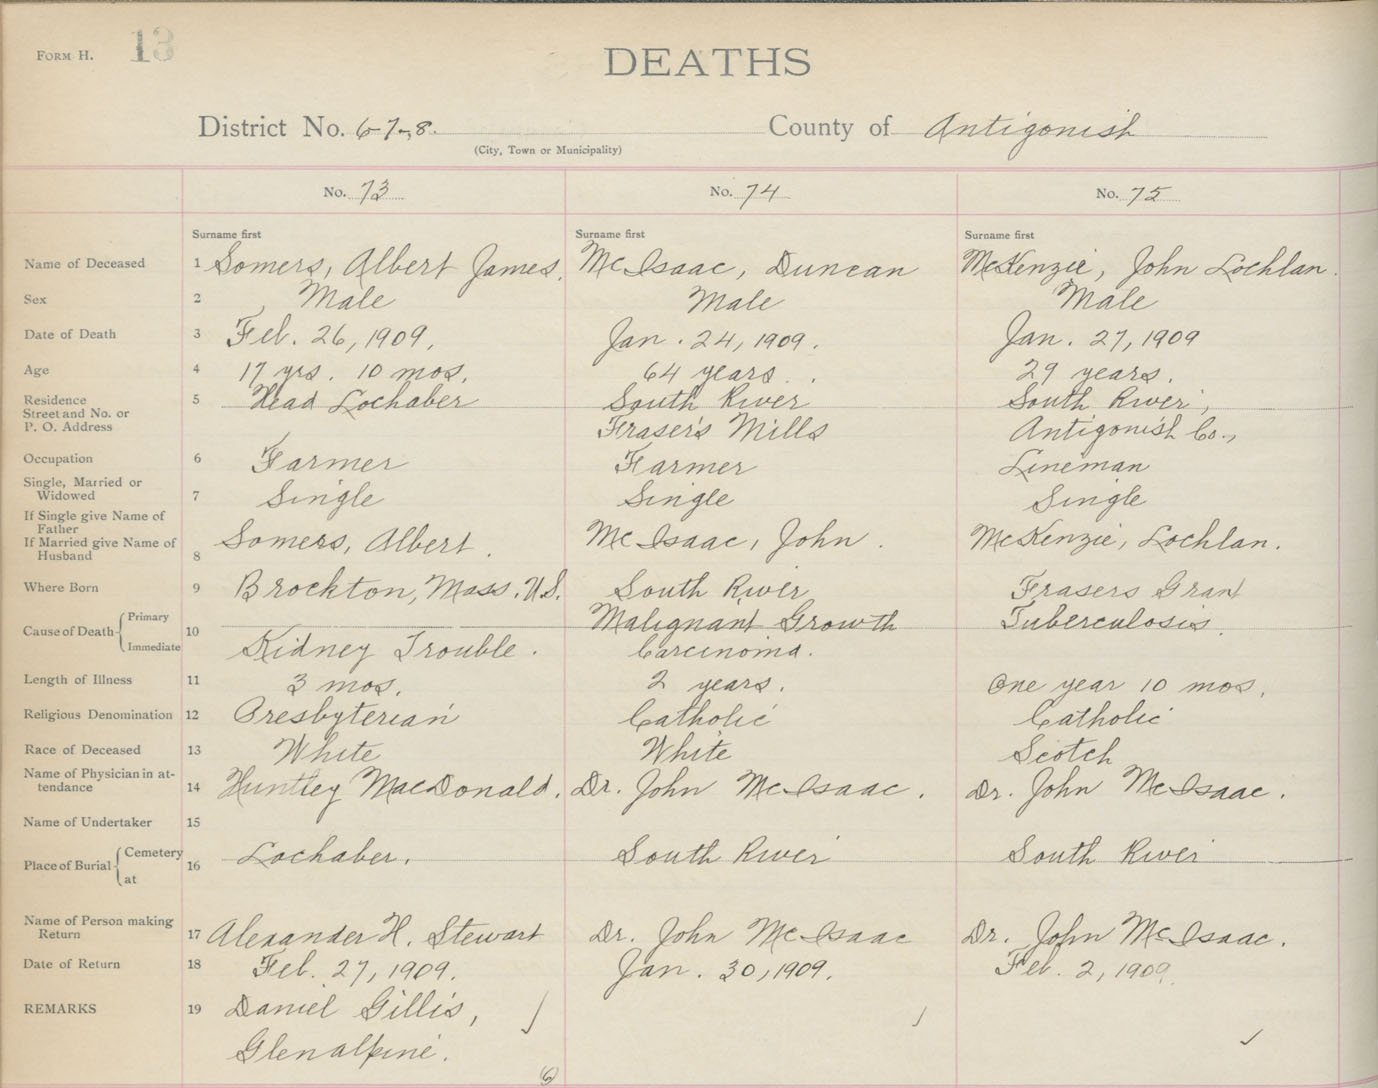 FORM H. 13
DEATHS
District No. 6-7-8. County of Antigonish
(City, Town or Municipality)
No. 73 No. 74 No. 75
Surname first Surname first Surname first
Name of Deceased 1 Somers, Albert James. McIsaac, Duncan McKenzie, John Lochlan.
Sex 2 Male Male Male
Date of Death 3 Feb. 26, 1909. Jan. 24, 1909. Jan. 27, 1909
Age 4 17 yrs. 10 mos. 64 years. 29 years.
Residence 5 Head Lochaber South River South River,
Street and No. or
P. O. Address Fraser's Mills Antigonish Co.,
Occupation 6 Farmer Farmer Lineman
Single, Married or
Widowed 7 Single Single Single
If Single give Name of
Father
If Married give Name of Somers, Albert. McIsaac, John. McKenzie, Lochlan.
Husband 8
Where Born 9 Brockton, Mass. U.S. South River Frasers Grant
Cause of Death Primary 10 Malignant Growth Tuberculosis.
Immediate Kidney Trouble. Carcinoma.
Length of Illness 11 3 mos. 2 years. One year 10 mos.
Religious Denomination 12 Presbyterian Catholic Catholic
Race of Deceased 13 White White Scotch
Name of Physician in at-
tendance 14 Huntley MacDonald. Dr. John McIsaac. Dr. John McIsaac.
Name of Undertaker 15
Place of Burial Cemetery 16 Lochaber. South River South River
at
Name of Person making
Return 17 Alexander H. Stewart Dr. John McIsaac Dr. John McIsaac.
Date of Return 18 Feb. 27, 1909. Jan. 30, 1909. Feb. 2, 1909.
REMARKS 19 Daniel Gillis,
Glenalpine.
6